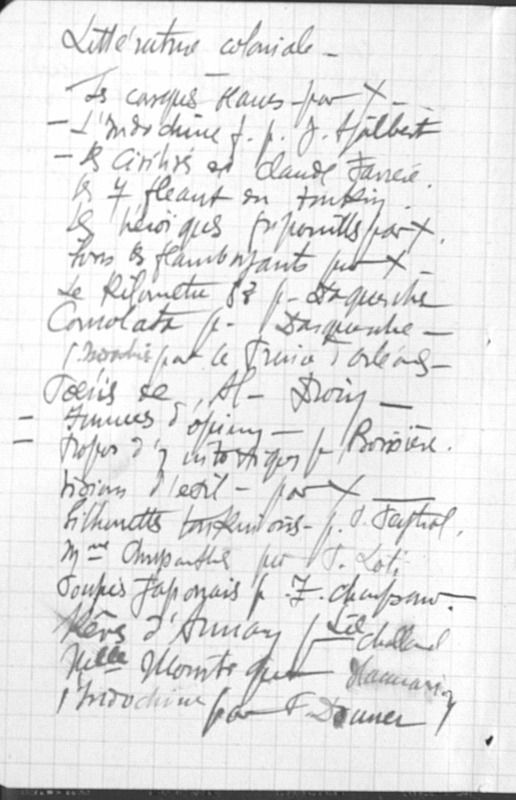 Littérature coloniale —
Les casques blancs - par X -
- L'Indochine f. p. J. Ajalbert
- Les Civilisés de Claude Farrère.
les 7 fléaux du tonkin.
les héroïques par X.
Sous les flamboyants par X -
Le Kilomètre 83 p - Daguerches
Consolata p - Daguerches —
l'Indochine par le Prince d'orléans -
Poésies de Al - Droin —
- Fumeurs d'opium —
- Propos d'1 intoxiqué p Boissière.
Visions d'exil - par X
Silhouettes tonkinoises - p.
Mme Chrysanthème par P. Loti
Poupées Japonaises p. F. champsaur.
Rêves d'Annam p Challand
Nelle
l'Indochine par P. Doumer